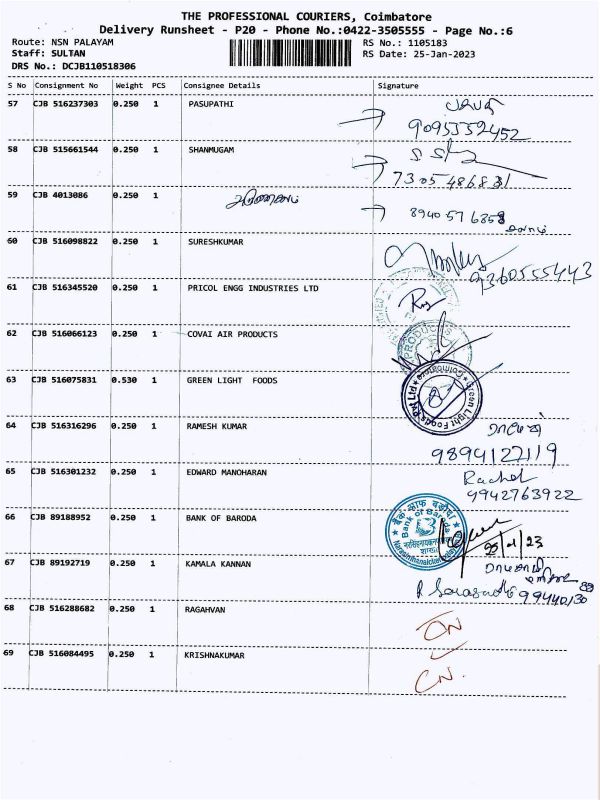 THE PROFESSIONAL COURIERS, Coimbatore
Delivery Runsheet - P20 - Phone No.:0422-3505555 - Page No.:6
Route: NSN PALAYAM RS No.: 1105183
Staff: SULTAN RS Date: 25-Jan-2023
DRS No.: DCJB110518306
S No Consignment No Weight PCS Consignee Details Signature
57 CJB 516237303 0.250 1 PASUPATHI
9095552452
58 CJB 515661544 0.250 1 SHANMUGAM
7305486831
59 CJB 4013086 0.250 1
8940576858
60 CJB 516098822 0.250 1 SURESHKUMAR
9360555443
61 CJB 516345520 0.250 1 PRICOL ENGG INDUSTRIES LTD
62 CJB 516066123 0.250 1 COVAI AIR PRODUCTS
PRODUCTS
63 CJB 516075831 0.530 1 GREEN LIGHT FOODS
Green Light Foods Pvt Ltd Coimbatore
64 CJB 516316296 0.250 1 RAMESH KUMAR
9894127119
65 CJB 516301232 0.250 1 EDWARD MANOHARAN Rachel
9942763922
66 CJB 89188952 0.250 1 BANK OF BARODA
बैंक ऑफ़ बड़ौदा
Bank of Baroda
67 CJB 89192719 0.250 1 KAMALA KANNAN
68 CJB 516288682 0.250 1 RAGAHVAN
69 CJB 516084495 0.250 1 KRISHNAKUMAR
CN.